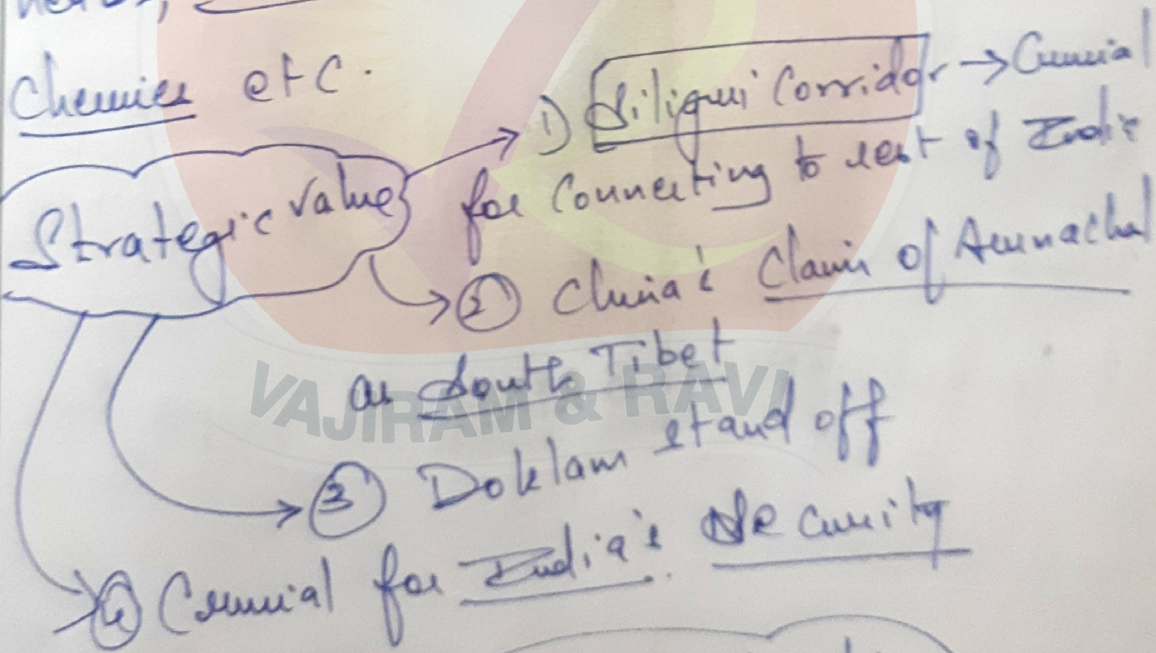 Chemies etc.
Strategic values
1) Siliguri Corridor → Crucial
for connecting to rest of India
② China's Claim of Arunachal
as South Tibet
VAJIRAM & RAVI
③ Doklam stand off
④ Crucial for India's Security